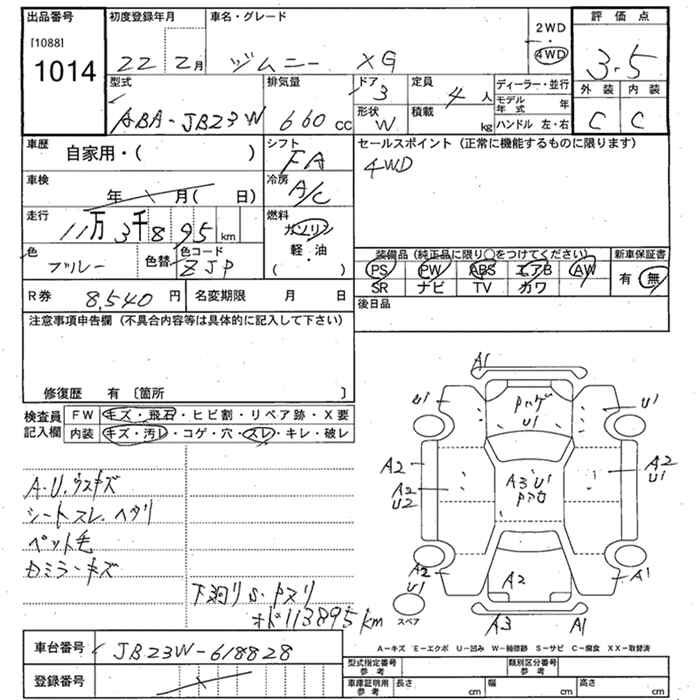 出品番号
[1088]
1014
初度登録年月
22 2月
車名・グレード
ジムニー XG
2WD
・
4WD
評価点
3.5
外装 内装
C C
型式
ABA-JB23W
排気量
660 cc
ドア
3
定員
4人
形状
W
積載
kg
ディーラー・並行
モデル年式 年
ハンドル 左・右
車歴
自家用・( )
シフト
FA
車検
年 月( 日)
冷房
A/C
走行
11万3千895 km
燃料
ガソリン
軽・油
( )
色
ブルー
色替
色コード
ZJP
セールスポイント(正常に機能するものに限ります)
4WD
装備品(純正品に限り○をつけてください)
PS PW ABS エアB AW
SR ナビ TV カワ
新車保証書
有・無
R券 8,540円
名変期限 月 日
後日品
注意事項申告欄(不具合内容等は具体的に記入して下さい)
修復歴 有〔箇所 〕
検査員記入欄
FW キズ・飛石・ヒビ割・リペア跡・X要
内装 キズ・汚レ・コゲ・穴・スレ・キレ・破レ
A.U.ウスキズ
シートスレ.ヘタリ
ペット毛
下廻りS.Pヌリ
オド113895km
A1
U1
Pハゲ
U1
U1
A2
A2
U2
A3 U1
A2
U1
A2
U1
A2
A1
A3
A1
スペア
A-キズ E-エクボ U-凹み W-補修跡 S-サビ C-腐食 XX-取替済
車台番号 JB23W-618828
登録番号
型式指定番号 参考
類別区分番号 参考
車庫証明用 参考 長さ cm 幅 cm 高さ cm